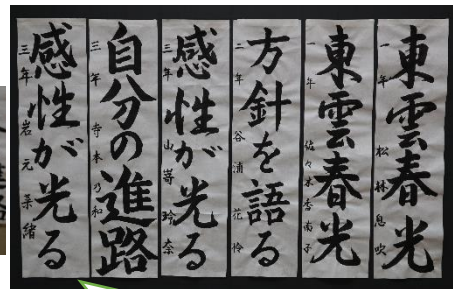 東雲春光
一年 松林 息吹
東雲春光
一年 佐々木杏南子
方針を語る
二年 谷浦 花怜
感性が光る
三年 山嵜 玲奈
自分の進路
三年 寺本 乃和
感性が光る
三年 岩元 菜緒